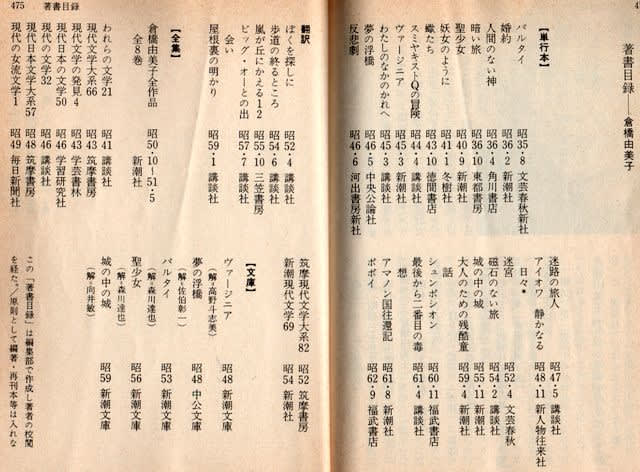 著書目録――倉橋由美子
【単行本】
パルタイ 昭35・8 文芸春秋新社
婚約 昭36・2 新潮社
人間のない神 昭36・4 角川書店
暗い旅 昭36・10 東都書房
聖少女 昭40・9 新潮社
妖女のように 昭41・1 冬樹社
蠍たち 昭43・10 徳間書店
スミヤキストQの冒険 昭44・4 講談社
ヴァージニア 昭45・3 新潮社
わたしのなかのかれへ 昭45・3 講談社
夢の浮橋 昭46・5 中央公論社
反悲劇 昭46・6 河出書房新社
迷路の旅人 昭47・5 講談社
アイオワ 静かなる
日々* 昭48・11 新人物往来社
迷宮 昭52・4 文芸春秋
磁石のない旅 昭54・2 講談社
城の中の城 昭55・11 新潮社
大人のための残酷童
話 昭59・4 新潮社
シュンポシオン 昭60・11 福武書店
最後から二番目の毒
想 昭61・4 講談社
アマノン国往還記 昭61・8 新潮社
ポポイ 昭62・9 福武書店
475 著書目録
翻訳
ぼくを探しに 昭52・4 講談社
歩道の終るところ 昭54・6 講談社
嵐が丘にかえる12 昭55・10 三笠書房
ビッグ・オーとの出
会い 昭57・7 講談社
屋根裏の明かり 昭59・1 講談社
【全集】
倉橋由美子全作品
全8巻 昭50・10〜51・5
新潮社
われらの文学21 昭41 講談社
現代文学大系66 昭43 筑摩書房
現代文学の発見4 昭43 学芸書林
現代日本の文学50 昭46 学習研究社
現代の文学32 昭46 講談社
現代日本文学大系57 昭48 筑摩書房
現代の女流文学1 昭49 毎日新聞社
筑摩現代文学大系82 昭52 筑摩書房
新潮現代文学69 昭54 新潮社
【文庫】
ヴァージニア 昭48 新潮文庫
(解=高野斗志美)
夢の浮橋 昭48 中公文庫
(解=佐伯彰一)
パルタイ 昭53 新潮文庫
(解=森川達也)
聖少女 昭56 新潮文庫
(解=森川達也)
城の中の城 昭59 新潮文庫
(解=向井敏)
この「著書目録」は編集部で作成し著者の校閲
を経た。/原則として編著・再刊本等は入れな